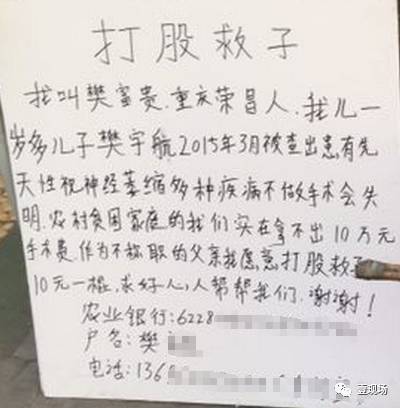 打股救子
我叫樊富贵.重庆荣昌人.我儿一
岁多儿子樊宇航2015年3月被查出患有先
天性视神经萎缩多种疾病不做手术会失
明.农村贫困家庭的我们实在拿不出10万元
手术费.作为不称职的父亲我愿意打股救子
10元一棍,求好心人帮帮我们.谢谢!
农业银行:6228
户名:樊
电话:136
壹现场